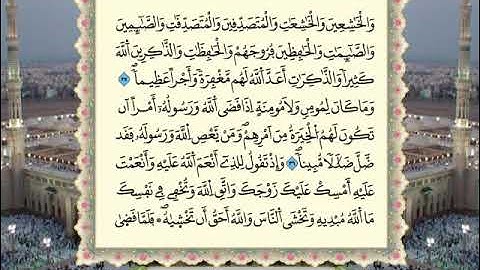 وَالْخَٰشِعِينَ وَالْخَٰشِعَٰتِ وَالْمُتَصَدِّقِينَ وَالْمُتَصَدِّقَٰتِ وَالصَّٰٓئِمِينَ
وَالصَّٰٓئِمَٰتِ وَالْحَٰفِظِينَ فُرُوجَهُمْ وَالْحَٰفِظَٰتِ وَالذَّٰكِرِينَ اَللَّهَ
كَثِيراً وَالذَّٰكِرَٰتِ أَعَدَّ اَللَّهُ لَهُم مَّغْفِرَةً وَأَجْراً عَظِيماً
وَمَا كَانَ لِمُومِنٍ وَلَا مُومِنَةٍ اِذَا قَضَى اَللَّهُ وَرَسُولُهُۥٓ أَمْراً اَن
تَكُونَ لَهُمُ اُلْخِيَرَةُ مِنَ اَمْرِهِمْ وَمَنْ يَّعْصِ اِللَّهَ وَرَسُولَهُۥ فَقَد
ضَّلَّ ضَلَٰلاً مُّبِيناً ٣٦ وَإِذْ تَقُولُ لِلذِےٓ أَنْعَمَ اَللَّهُ عَلَيْهِ وَأَنْعَمْتَ
عَلَيْهِ أَمْسِكْ عَلَيْكَ زَوْجَكَ وَاتَّقِ اِللَّهَ وَتُخْفِے فِے نَفْسِكَ
مَا اَللَّهُ مُبْدِيهِ وَتَخْشَى اَلنَّاسَ وَاللَّهُ أَحَقُّ أَن تَخْشَىٰهُ ۞ فَلَمَّا قَضَىٰ